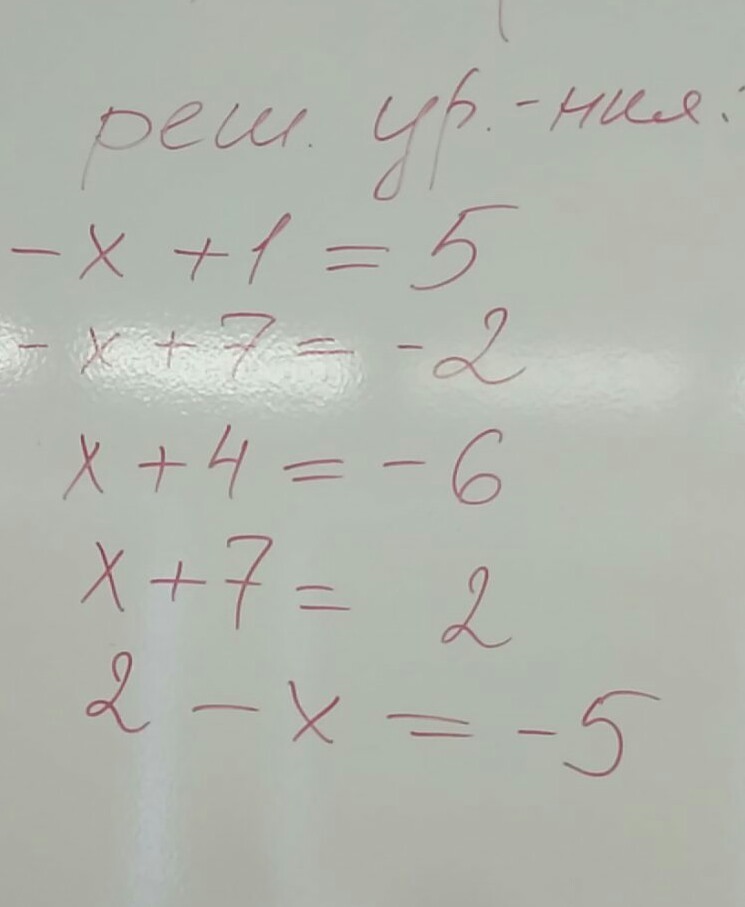 реш. ур.-ния:
-x + 1 = 5
-x + 7 = -2
x + 4 = -6
x + 7 = 2
2 - x = -5